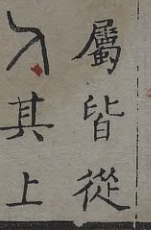 屬皆從
其上